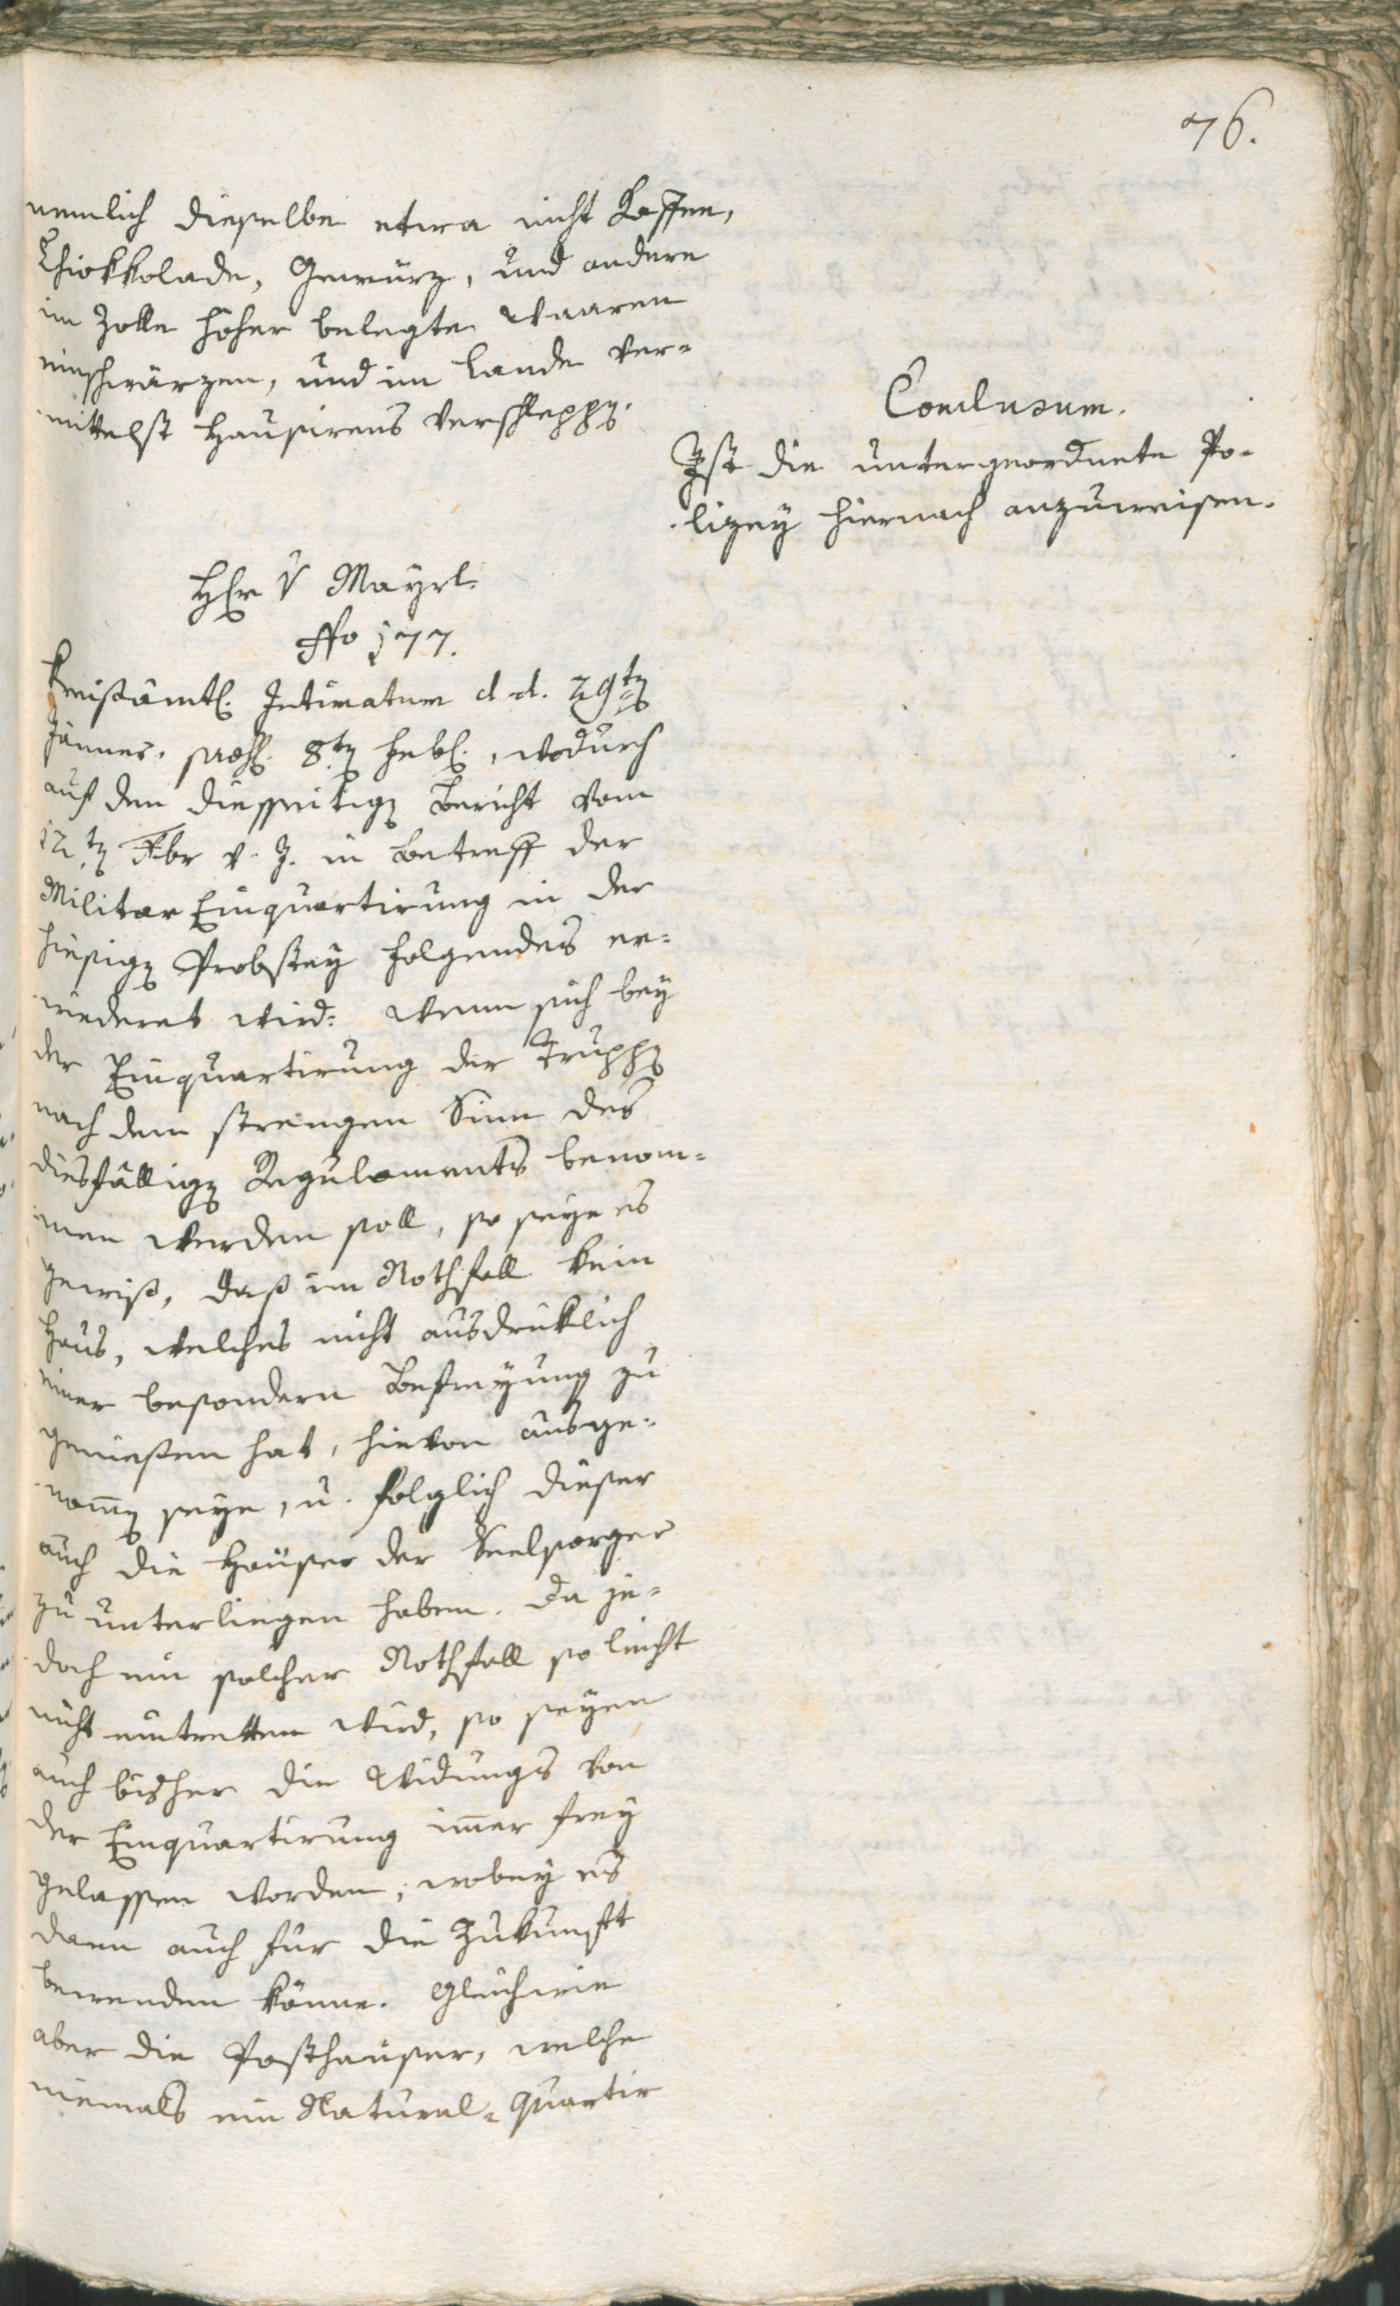 76.
nemlich dieselbe etwa nicht Caffee,
Chiokkolade, Gewürz, und andere
im Zolle höher belegte Waaren
einschwärzen, und im Lande ver-
mittelst Hausirens verschleppen.
Conclusum.
Ist die untergeordnete Po-
lizey hiernach anzuweisen.
Hr v Mayrl.
No 177.
Kreisämtl. Intimatum d. d. 29ten
Jänner. 8ten Febl., wodurch
auf den diesseitigen Bericht vom
12ten Xbr v. J. in Betreff der
Militar Einquartirung in der
hiesigen Probstey folgendes er-
wiederet wird: Wenn sich bey
der Einquartirung der Truppen
nach dem strengen Sinn des
diesfälligen Regulaments benom-
men werden soll, so seye es
gewiß, daß im Nothfall kein
Haus, welches nicht ausdrüklich
einer besondern Befreyung zu
genießen hat, hievon ausge-
nommen seye, u. folglich dieser
auch die Häuser der Seelsorger
zu unterliegen haben. Da je-
doch ein solcher Nothfall so leicht
nicht eintretten wird, so seyen
auch bisher die Widungs von
der Einquartirung immer frey
gelassen worden, wobey es
dann auch für die Zukunft
bewenden könne. Gleichwie
aber die Posthäuser, welche
niemals ein Natural-Quartir